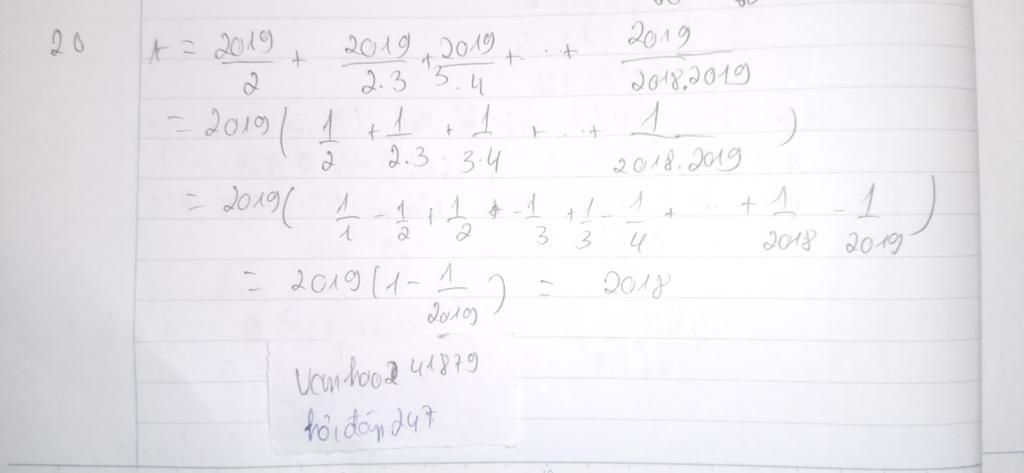 20 A = 2019/2 + 2019/2.3 + 2019/3.4 + ... + 2019/2018.2019
= 2019( 1/2 + 1/2.3 + 1/3.4 + ... + 1/2018.2019 )
= 2019( 1/1 - 1/2 + 1/2 - 1/3 + 1/3 - 1/4 + ... + 1/2018 - 1/2019 )
= 2019(1 - 1/2019) = 2018
vanhao241879
hỏi đáp 247